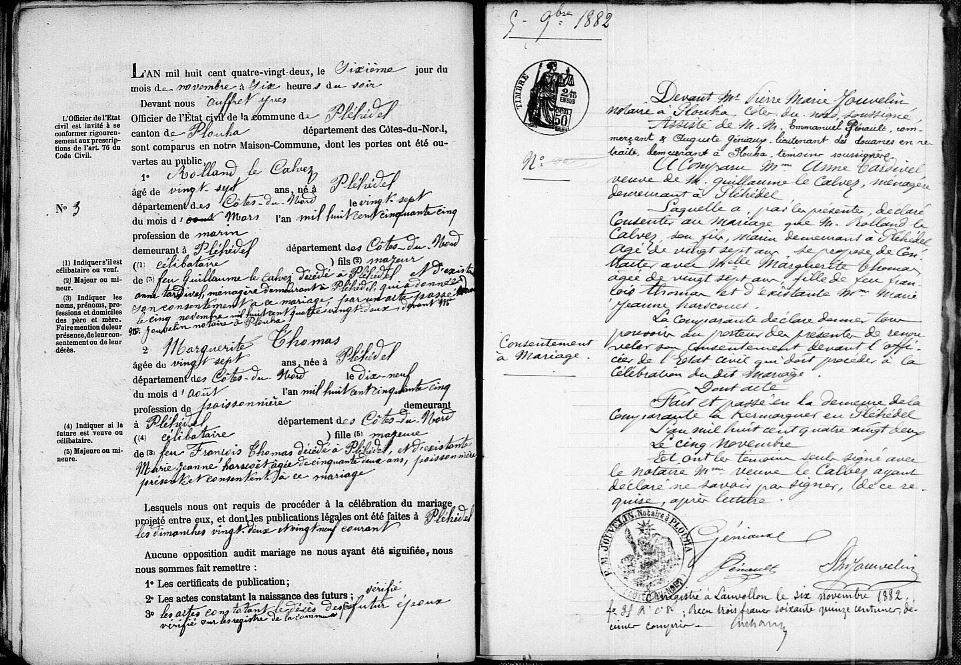 L'AN mil huit cent quatre-vingt-deux, le Sixième jour du
mois de novembre à Six heures du soir
Devant nous Auffret Yves
Officier de l'Etat civil de la commune de Pléhédel
canton de Plouha département des Côtes-du-Nord,
sont comparus en notre Maison-Commune, dont les portes ont été ou-
vertes au public
1° Rolland le Calvez
âgé de vingt sept ans, né à Pléhédel
département des Côtes-du-Nord le vingt-sept
du mois d' Mars l'an mil huit cent cinquante cinq
profession de marin
demeurant à Pléhédel département des Côtes-du-Nord
(1) célibataire ) fils (2) majeur
de (3) feu Guillaume le Calvez décédé à Pléhédel et d'existante
anne tardivel, ménagère demeurant à Pléhédel, qui a donné
son consentement à ce mariage, par un acte passé
le cinq novembre mil huit cent quatre vingt deux devant
Me Jouvelin notaire à Plouha
2 Marguerite Thomas
âgée de vingt sept ans, née à Pléhédel
département des Côtes-du-Nord le dix-neuf
du mois d'août l'an mil huit cent cinquante cinq
profession de poissonnière demeurant
à Pléhédel département des Côtes du Nord
(4) célibataire ) fille (5) majeure
de (3) feu François Thomas décédé à Pléhédel, et d'existante
Marie Jeanne harscoët âgée de cinquante deux ans, poissonnière
présente et consentent à ce mariage
Lesquels nous ont requis de procéder à la célébration du mariage
projeté entre eux, et dont les publications légales ont été faites à Pléhédel
les dimanches vingt-deux et vingt neuf courant
Aucune opposition audit mariage ne nous ayant été signifiée, nous
nous sommes fait remettre :
1° Les certificats de publication ;
2° Les actes constatant la naissance des futurs ; vérifié
3° les actes constatant le décès des futur époux
vérifié sur les registre de la commune
L'Officier de l'Etat
civil est invité à se
conformer rigoureu-
sement aux prescrip-
tions de l'art. 76 du
Code Civil.
N° 3
(1) Indiquer s'il est
célibataire ou veuf.
(2) Majeur ou mi-
neur.
(3) Indiquer les
noms, prénoms, pro-
fessions et domiciles
des père et mère.
Faire mention de leur
présence, de leur con-
sentement ou de leur
décès.
(4) Indiquer si la
future est veuve ou
célibataire.
(5) Majeure ou mi-
neure.
5 - 9bre 1882
TIMBRE
50
N°
Consentement
à Mariage.
Devant Me Pierre Marie Jouvelin
notaire à Plouha Côtes du Nord, soussigné,
Assisté de M. M. Emmanuel Pérault, com-
merçant & Auguste Géniaux, lieutenant des douanes en re-
traite demeurant à Plouha, témoins soussignés
A Comparu Mme Anne Tardivel
veuve de M. Guillaume le Calvez, ménagère
demeurant à Pléhédel
Laquelle a, par les présentes, déclaré
Consentir au mariage que M. Rolland le
Calvez son fils, Marin demeurant à Pléhédel
âgé de vingt sept ans, se propose de Con-
tracter avec Melle Marguerite Thomas
âgée de vingt sept ans, fille de feu fran-
çois Thomas et d'existante Mme Marie
Jeanne harscouet
La Comparante déclare donner tous
pouvoirs au porteur des présentes de renou-
veler son consentement devant l'offi-
cier de l'Etat Civil qui doit procéder à la
Célébration du dit Mariage.
Dont acte
Fait et passé en la demeure de la
Comparante à Kermarquer en Pléhédel
L'an mil huit cent quatre vingt deux
Le cinq Novembre
Et ont les témoins seuls signé avec
le notaire Mme veuve le Calvez ayant
déclaré ne savoir pas signer, de ce re-
quise, après lecture.
P. M. JOUVELIN, Notaire à PLOUHA
Géniaux
Pérault
Jouvelin
Enregistré à Lanvollon le six novembre 1882,
Reçu trois francs soixante quinze centimes, dé-
cimes compris